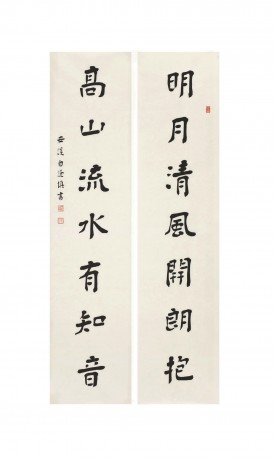 明月清風開朗抱
高山流水有知音